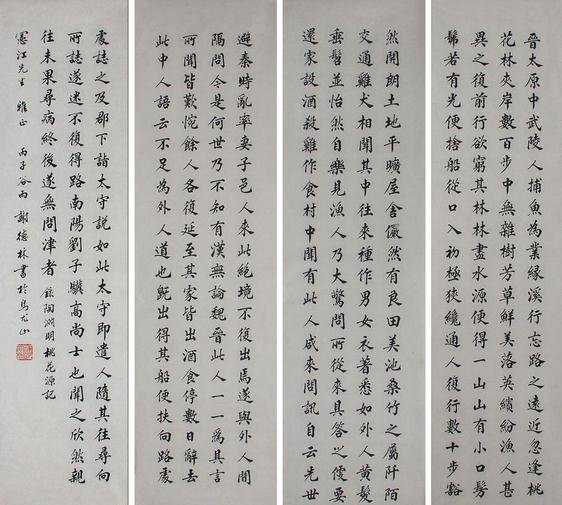 晉太原中武陵人捕魚為業緣溪行忘路之遠近忽逢桃
花林夾岸數百步中無雜樹芳草鮮美落英繽紛漁人甚
異之復前行欲窮其林林盡水源便得一山山有小口髣
髴若有光便捨船從口入初極狹纔通人復行數十步豁
然開朗土地平曠屋舍儼然有良田美池桑竹之屬阡陌
交通雞犬相聞其中往來種作男女衣著悉如外人黃髮
垂髫並怡然自樂見漁人乃大驚問所從來具答之便要
還家設酒殺雞作食村中聞有此人咸來問訊自云先世
避秦時亂率妻子邑人來此絕境不復出焉遂與外人間
隔問今是何世乃不知有漢無論魏晉此人一一為具言
所聞皆歎惋餘人各復延至其家皆出酒食停數日辭去
此中人語云不足為外人道也既出得其船便扶向路處
處誌之及郡下詣太守說如此太守即遣人隨其往尋向
所誌遂迷不復得路南陽劉子驥高尚士也聞之欣然親
往未果尋病終後遂無問津者 錄陶淵明桃花源記
憲江先生雅正 丙子谷雨謝德林書於馬山